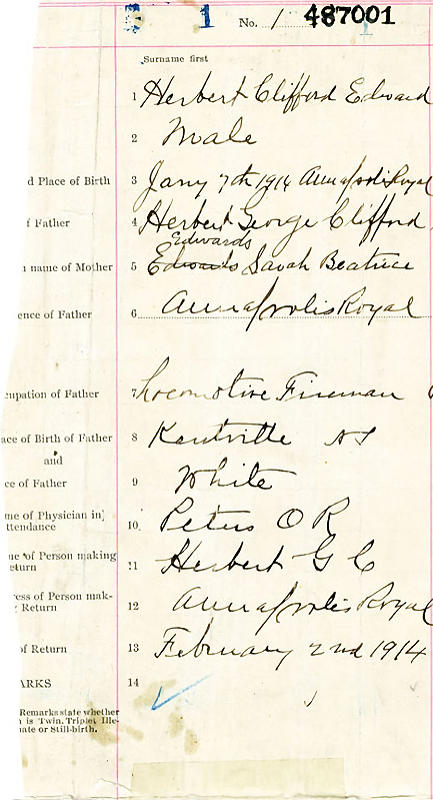 1 No. 1 487001
Surname first
1 Herbert Clifford Edward
2 Male
d Place of Birth 3 Jany 7th 1914 Annapolis Royal
f Father 4 Herbert George Clifford
Edwards
name of Mother 5 Edwards Sarah Beatrice
ence of Father 6 Annapolis Royal
cupation of Father 7 Locomotive Fireman
ace of Birth of Father 8 Kentville NS
and
ce of Father 9 White
me of Physician in
ttendance 10 Peters O R
me of Person making
eturn 11 Herbert G C
ress of Person mak-
Return 12 Annapolis Royal
of Return 13 February 2nd 1914
ARKS 14
Remarks state whether
is Twin, Triplet, Ille-
mate or Still-birth.